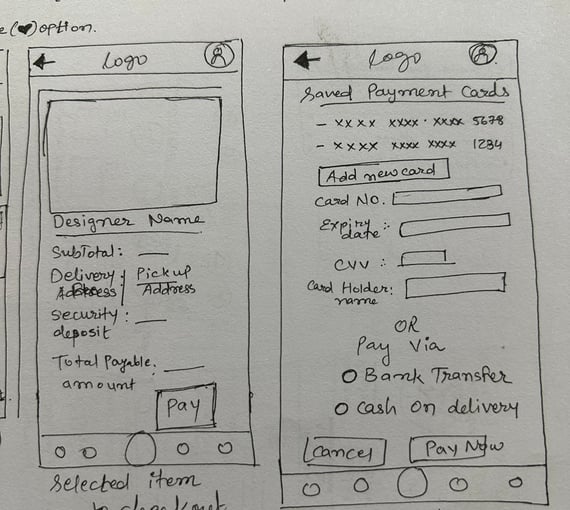 (♥) option.
Logo
Designer Name
SubTotal:
Delivery Address | Pickup Address
Security deposit :
Total Payable amount :
Pay
Selected item
to checkout
Logo
Saved Payment Cards
- xxxx xxxx xxxx 5678
- xxxx xxxx xxxx 1234
Add new card
Card No.
Expiry date :
CVV :
Card Holder: name
OR
Pay Via
Bank Transfer
Cash On delivery
Cancel
Pay Now